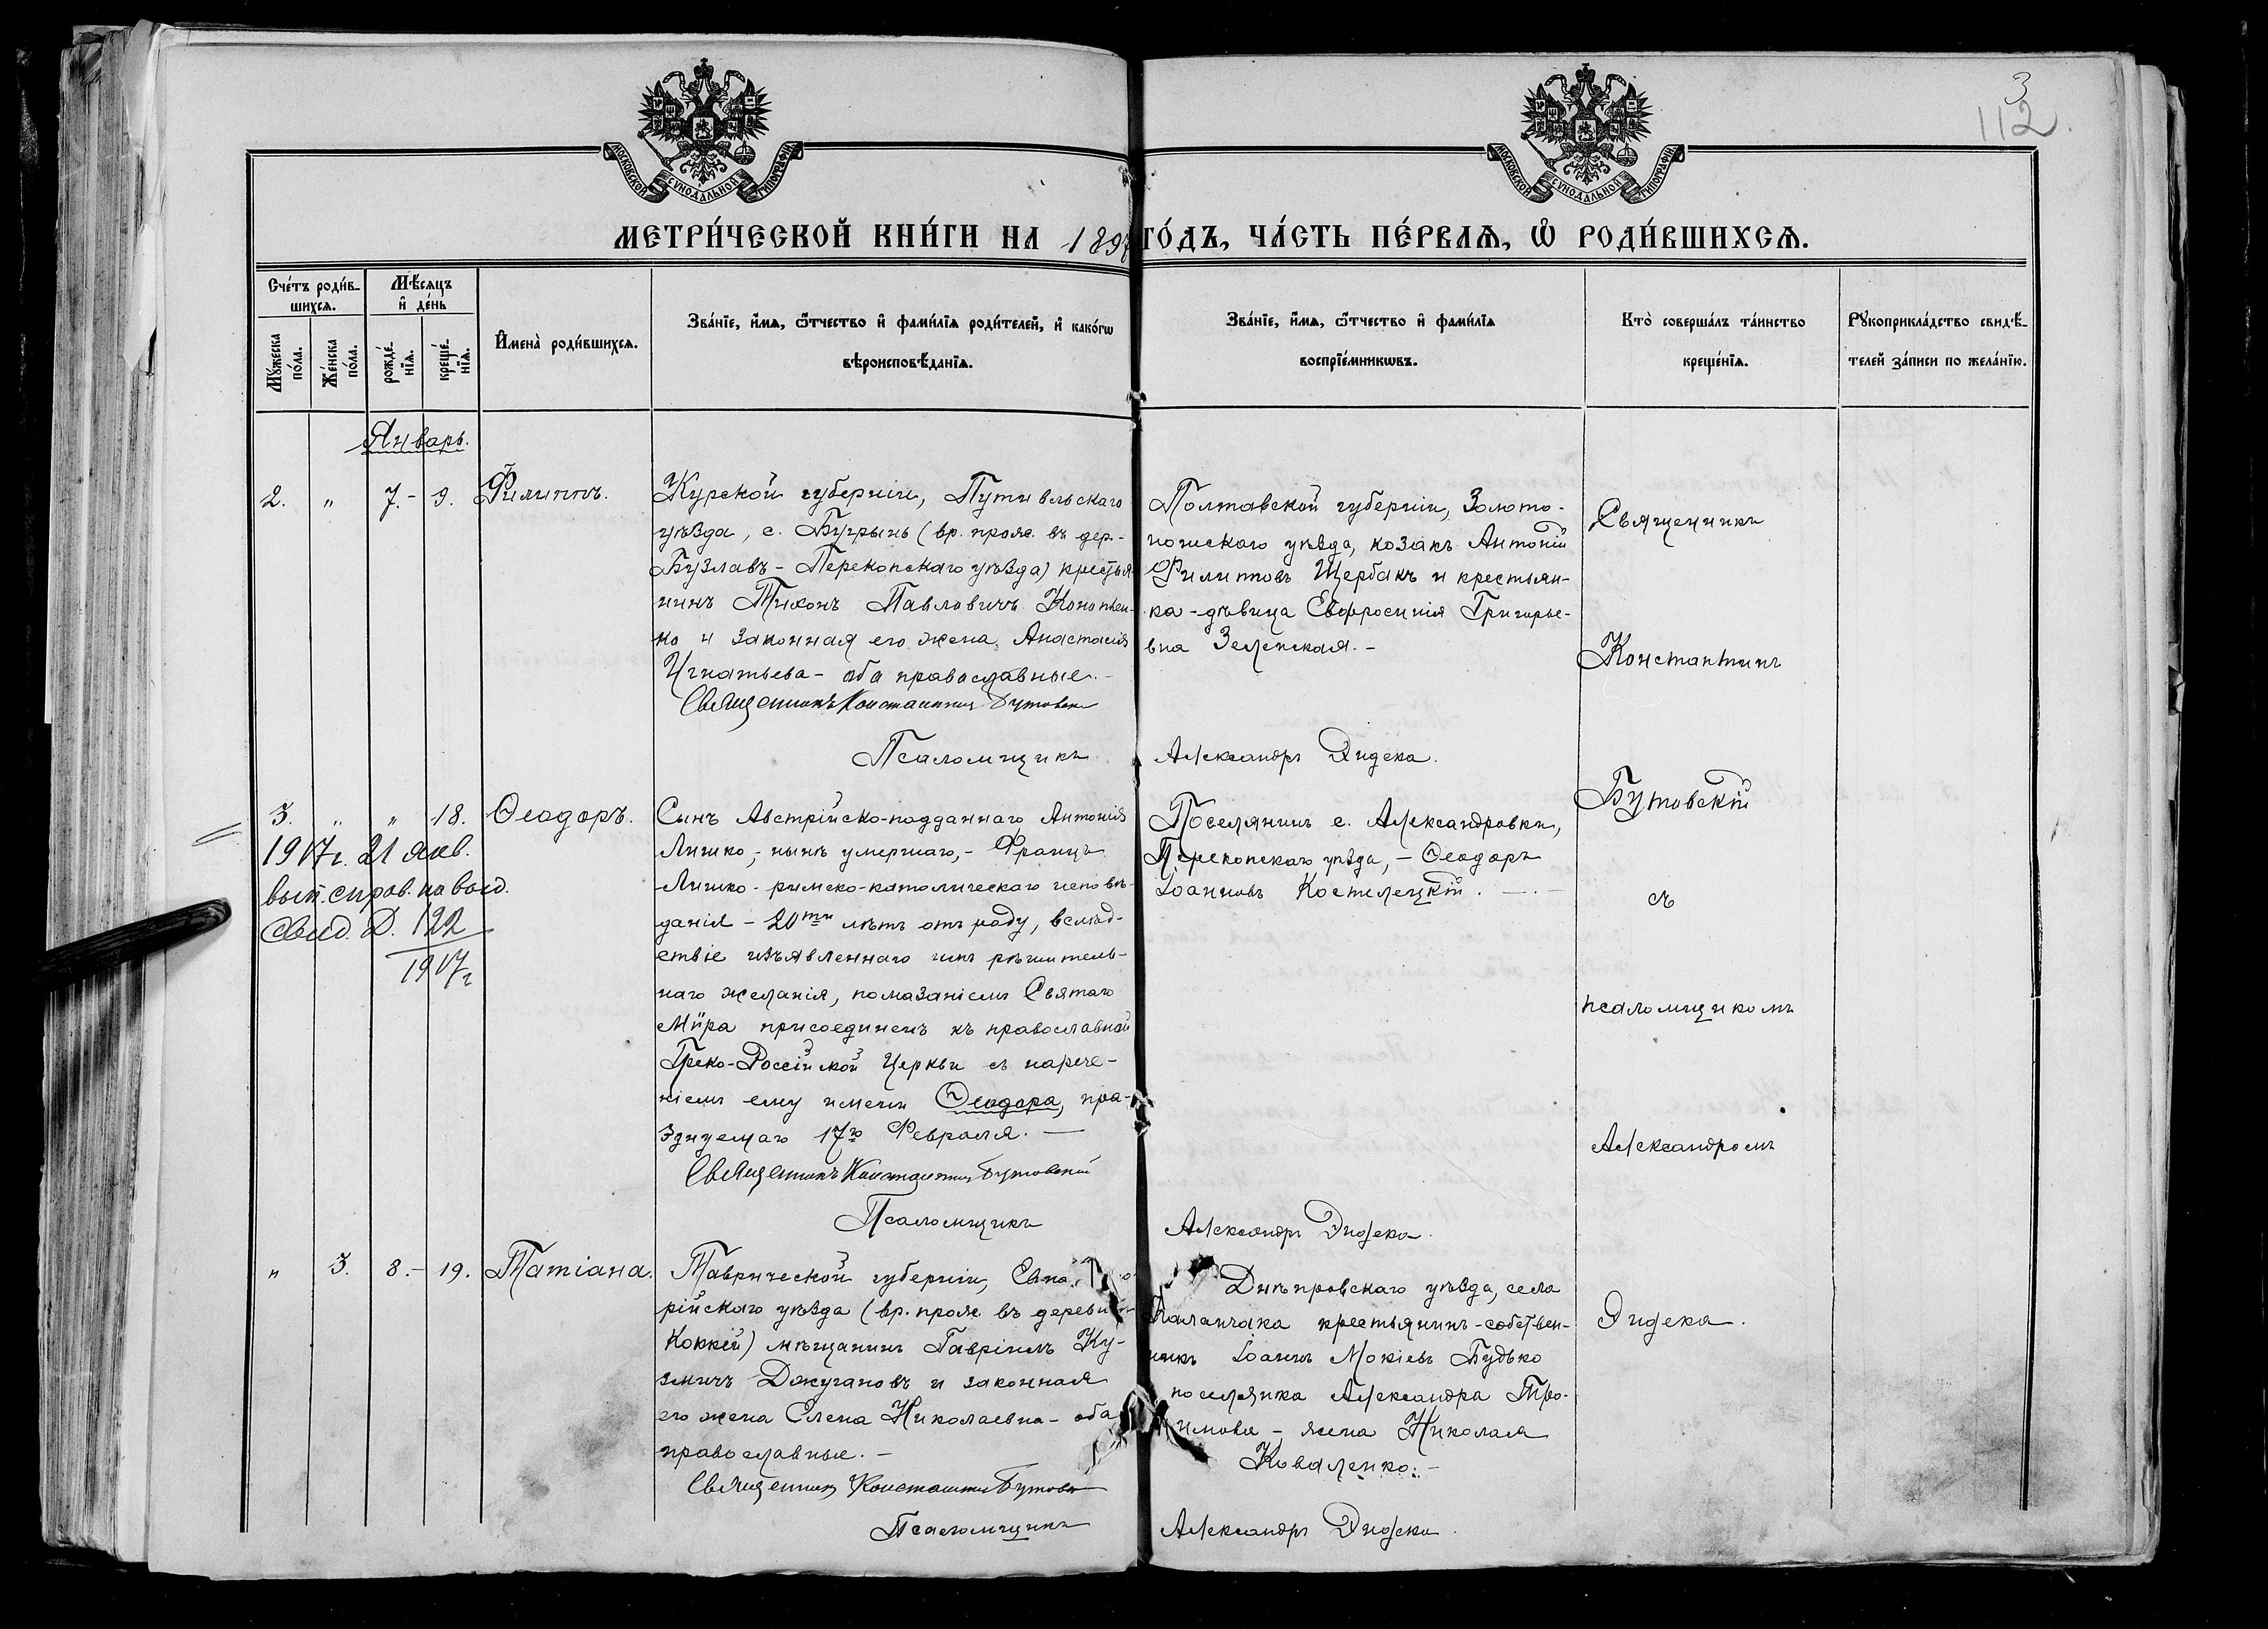 3
112
МОСКОВСКОЙ СѴНОДАЛЬНОЙ ТИПОГРАФІИ
МОСКОВСКОЙ СѴНОДАЛЬНОЙ ТИПОГРАФІИ
МЕТРИ́ЧЕСКОЙ КНИ́ГИ НА 1897 ГО́ДЪ, ЧА́СТЬ ПЕ́РВАѦ, Ѡ РОДИ́ВШИХСѦ.
Сче́тъ роди́в-
шихсѧ.
Мꙋ́жеска
по́ла.
Же́нска
по́ла.
Мѣ́сѧцъ
и҆ де́нь
рожде́-
нїѧ.
креще́-
нїѧ.
И҆мена̀ роди́вшихсѧ.
Зва́нїе, и҆́мѧ, ѻ҆́тчество и҆ фами́лїѧ роди́телей, и҆ како́гѡ
вѣроисповѣ́данїѧ.
Зва́нїе, и҆́мѧ, ѻ҆́тчество и҆ фами́лїѧ
воспрїе́мникѡвъ.
Кто̀ соверша́лъ та́инство
креще́нїѧ.
Рꙋкоприкла́дство свидѣ́-
телей за́писи по жела́нїю.
Январь.
2. " 7.- 9. Филиппъ.
Курской губерніи, Путивльскаго
уѣзда, с. Бугрынь (вр. прож. въ дер.-
Бузлавъ - Перекопскаго уѣзда) крестья-
нинъ Тихонъ Павловичъ Конопен-
ко и законная его жена Анастасія
Игнатьева - оба православные.-
Священникъ Константинъ Бутовск
Псаломщикъ
Полтавской губерніи, Золото-
ношскаго уѣзда, козакъ Антоній
Филиповъ Щербакъ и крестьян-
ка-дѣвица Евфросинія Григорье-
вна Зеленская.-
Александръ Дидека.
3. " " 18. Ѳеодоръ.
1917г. 21 янв.
выт. справ. на
свид. Д. 122
1917г
Сынъ Австрійско-подданнаго Антонія
Лишко,- нынѣ умершаго,- Францъ
Лишко - римско-католическаго исповѣ-
данія - 20ти лѣтъ отъ роду, вслѣд-
ствіе изъявленнаго имъ рѣшитель-
наго желанія, помазаніемъ Святаго
Мѵра присоединенъ къ православной
Греко-Россійской Церкви съ нарече-
ніемъ ему имени Ѳеодора, пра-
зднуемаго 17го Февраля.-
Священникъ Константинъ Бутовскій
Псаломщикъ
Поселянинъ с. Александровки,
Перекопскаго уѣзда, - Ѳеодоръ
Іоанновъ Костилецкій.-
Александръ Дидека.
" 3. 8.- 19. Татіана.
Таврической губерніи, Евпа
рійскаго уѣзда (вр. прож. въ деревн
Коккей) мѣщанинъ Гавріилъ Ку-
змичъ Джугановъ и законная
его жена Елена Николаевна - оба
православные.-
Священникъ Константинъ Бутовск
Псаломщикъ
Днѣпровскаго уѣзда, села
Каланчака крестьянинъ-собствен-
никъ Іоаннъ Мокіевъ Будько
поселянка Александра Тро-
имова - жена Николая
Коваленко.-
Александръ Дидека
Священникъ
Константинъ
Бутовскій
съ
псаломщикомъ
Александромъ
Дидека.